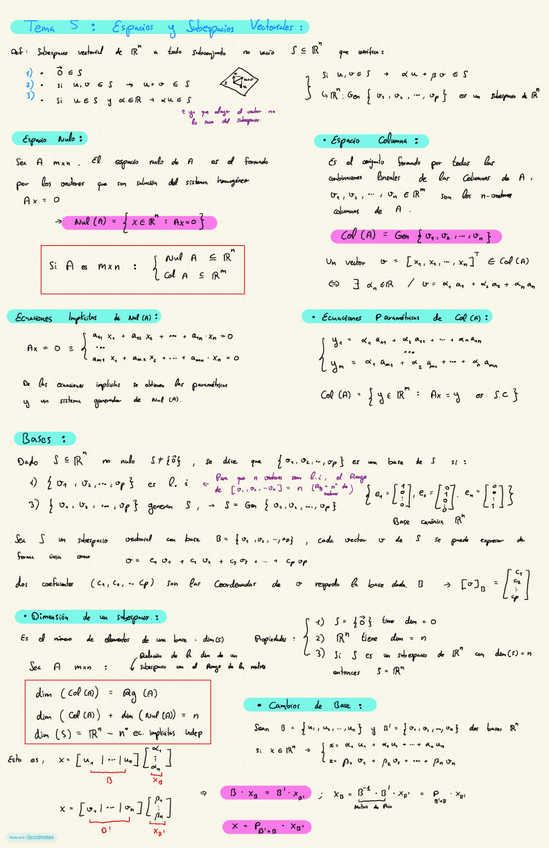 Tema 5 : Espacios y Subespacios Vectoriales :
Def: Subespacio vectorial de ℝⁿ a todo subconjunto no vacío S ⊆ ℝⁿ que verifica:
1) • 0⃗ ∈ S
2) • si u, v ∈ S → u + v ∈ S
3) • Si u ∈ S y α ∈ ℝ → αu ∈ S
ya que alargo el vector no
lo saco del subespacio
Si u, v ∈ S → αu + βv ∈ S
↳ ℝⁿ: Gen {v₁, v₂, ..., vp} es un subespacio de ℝⁿ
Espacio Nulo :
Sea A m×n. El espacio nulo de A es el formado
por los vectores que son solución del sistema homogéneo
Ax = 0
→ Nul(A) = {x ∈ ℝⁿ : Ax=0}
Si A es m×n : { Nul A ⊆ ℝⁿ
Col A ⊆ ℝᵐ
• Espacio Columna :
Es el conjunto formado por todas las
combinaciones lineales de las columnas de A.
v₁, v₂, ..., vₙ ∈ ℝᵐ son los n-vectores
columnas de A.
Col(A) = Gen {v₁, v₂, ..., vₙ}
Un vector v = [x₁, x₂, ..., xₙ]ᵀ ∈ Col(A)
⇔ ∃ αₙ ∈ ℝ / v = α₁a₁ + α₂a₂ + αₙaₙ
Ecuaciones Implícitas de Nul(A) :
Ax = 0 ≡ { a₁₁x₁ + a₁₂x₂ + ... + a₁ₙ·xₙ = 0
...
aₘ₁x₁ + aₘ₂x₂ + ... + aₘₙ·xₙ = 0
De las ecuaciones implícitas se obtienen las paramétricas
y un sistema generador de Nul(A).
• Ecuaciones Paramétricas de Col(A) :
{ y₁ = α₁a₁₁ + α₂a₁₂ + ... + αₙa₁ₙ
...
yₘ = α₁aₘ₁ + α₂aₘ₂ + ... + αₙaₘₙ
Col(A) = {y ∈ ℝᵐ : Ax = y es S.C}
Bases :
Dado S ⊆ ℝⁿ no nulo S ≠ {0⃗}, se dice que {v₁, v₂, ..., vp} es una base de S si :
1) {v₁, v₂, ..., vp} es l.i
← Para que n vectores sean l.i, el Rango
de [v₁, v₂, ... vₙ] = n
3) {v₁, v₂, ..., vp} generan S, → S = Gen {v₁, v₂, ..., vp}
{ e₁ = [1 0 0 0], e₂ = [0 1 0], eₙ = [0 0 1] }
Base canónica ℝⁿ
Sea S un subespacio vectorial con base B = {v₁, v₂, ..., vp}, cada vector v de S se puede expresar de
forma única como v = c₁v₁ + c₂v₂ + c₃v₃ + ... + cpvp
los coeficientes (c₁, c₂, ... cp) son las Coordenadas de v respecto la base dada B → [v]_B = [c₁ c₂ ⋮ cp]
• Dimensión de un subespacio. :
Es el número de elementos de una base : dim(S)
Sea A m×n :
Relación de la dim de un
subespacio con el Rango de la matriz
Propiedades : { 1) S = {0⃗} tiene dim = 0
2) ℝⁿ tiene dim = n
3) Si S es un subespacio de ℝⁿ con dim(S) = n
entonces S = ℝⁿ
dim (Col(A)) = Rg (A)
dim (Col(A)) + dim (Nul(A)) = n
dim (S) = ℝⁿ − nº ec. implícitas indep
• Cambios de Base :
Sean B = {u₁, u₂, ..., uₙ} y B' = {v₁, v₂, ..., vₙ} dos bases ℝⁿ
si x ∈ ℝⁿ → { x = α₁u₁ + α₂u₂ + ... + αₙuₙ
x = β₁v₁ + β₂v₂ + ... + βₙvₙ
Esto es, x = [u₁ | ... | uₙ] [α₁ ⋮ αₙ]
B X_B
x = [v₁ | ... | vₙ] [β₁ ⋮ βₙ]
B' X_B'
⇒ B · X_B = B' · X_B' ; X_B = B⁻¹ · B' · X_B' = P_B'→B · X_B'
Matriz de Paso
X = P_B'→B · X_B'
Made with Goodnotes